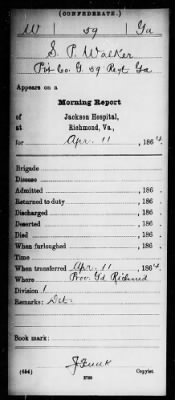 (CONFEDERATE.)
W 59 Ga
S. P. Walker
Pvt Co. G 59 Regt Ga
Appears on a
Morning Report
of Jackson Hospital,
at Richmond, Va.,
for Apr. 11, 1864.
Brigade
Disease
Admitted , 186 .
Returned to duty , 186 .
Discharged , 186 .
Deserted , 186 .
Died , 186 .
When furloughed , 186 .
Time
When transferred Apr. 11, 1864.
Where Prov. Gd Richmd
Division 1
Remarks: Det.
Book mark:
(486) Copyist.